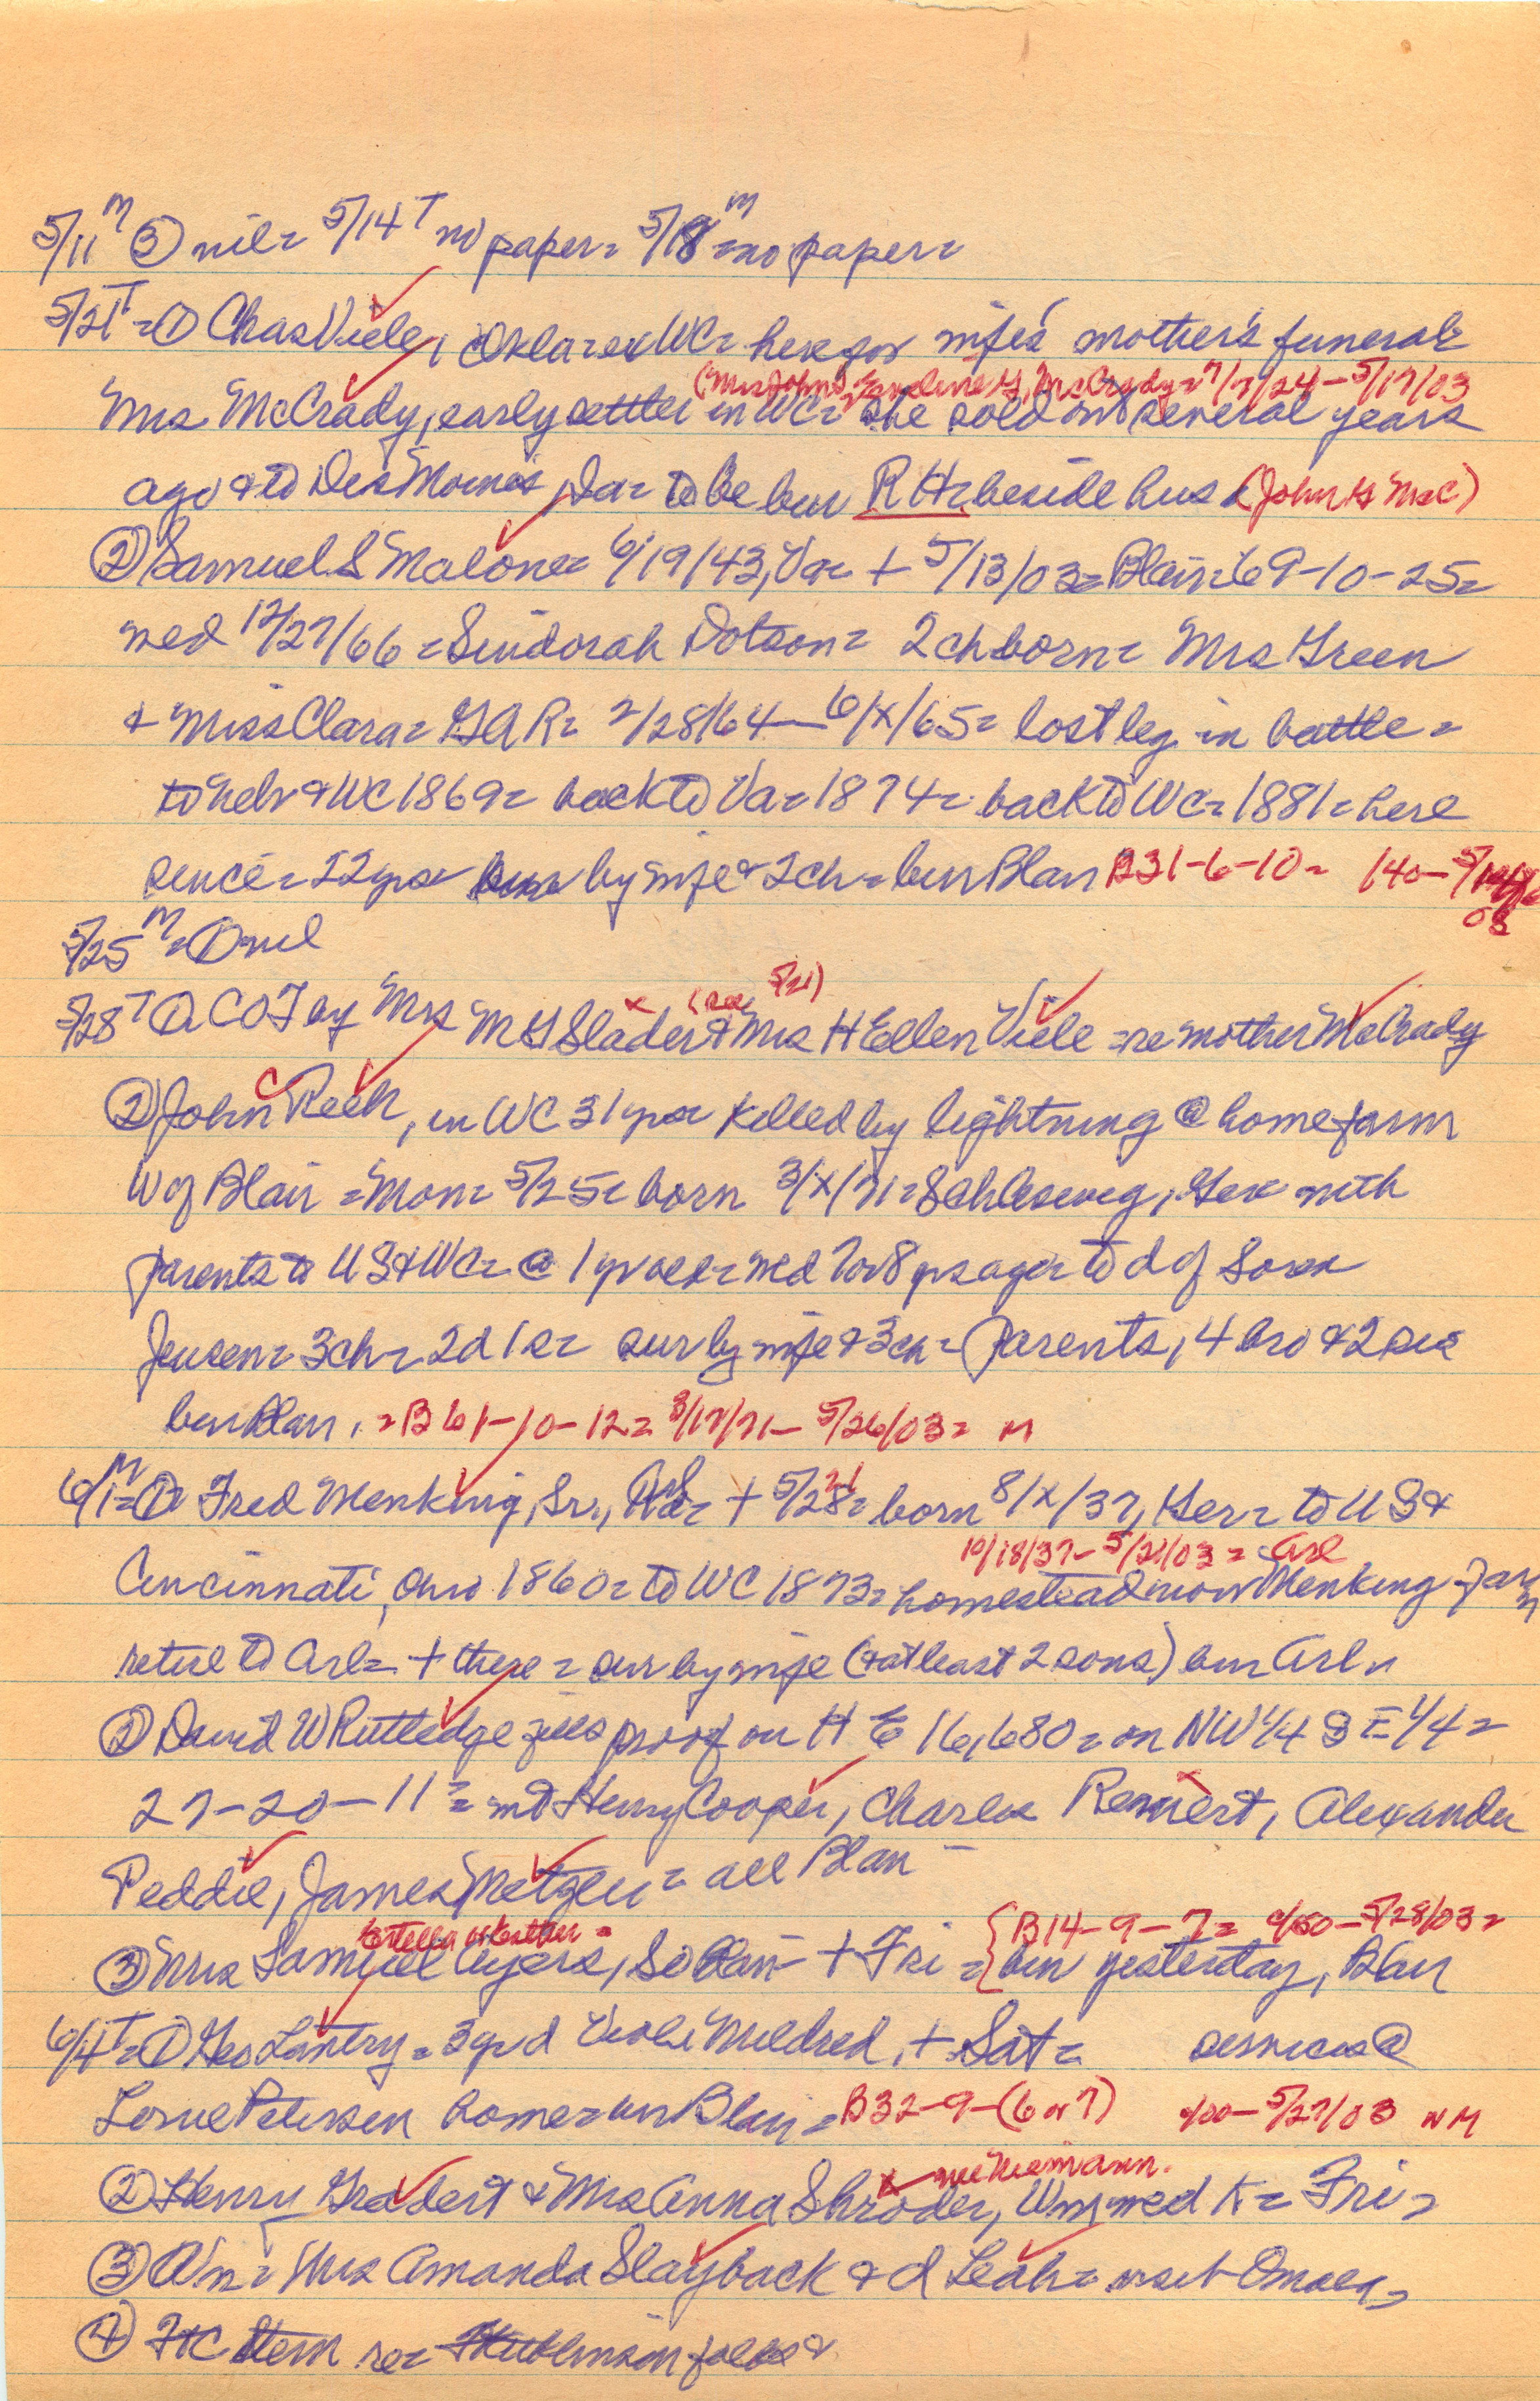 5/11 M ③ nil = 5/14 T no paper = 5/18 M = no paper =
5/21 T = ① Chas Viele, Okla = ex WC = here for wife's mother's funeral =
(Mrs John S, Emeline G, McCrady = 7/7/24 - 5/17/03
Mrs McCrady, early settler in WC = she sold out several years
ago & to Des Moines, Ia = to be bur R H = beside hus (John S McC)
② Samuel S Malone = 6/19/43, Va = + 5/13/03 = Blair = 69-10-25 =
med 12/27/66 = Sindorah Dotson = 2 ch born = Mrs Green
& Miss Clara = GAR = 2/28/64 — 6/X/65 = lost leg in battle =
to Nebr & WC 1869 = back to Va = 1874 = back to WC = 1881 = here
since = 22 yrs = sur by wife & 2 ch = bur Blair B31-6-10 = 140 -
03
5/25 M = ① nil
5/28 T ① C O T by Mrs M G Slader & Mrs H Ellen Viele = re mother McCrady
(see 5/21)
② John Reeh, in WC 31 yrs = killed by lightning @ home farm
W of Blair = Mon = 5/25 = born 3/X/71 = Schleswig, Ger = with
parents to US & WC = @ 1 yr old = med 7 or 8 yrs ago = to d of Soren
Jensen = 3 ch = 2 d 1 s = sur by wife & 3 ch = parents, 4 bro & 2 sis
bur Blair, = B 61-10-12 = 3/17/71 - 5/26/03 = M
6/1 M = ① Fred Menking, Sr., + 5/28 = born 8/X/37, Ger = to US &
10/18/37 - 5/21/03 = Arl
Cincinnati, Ohio 1860 = to WC 1873 = homestead now Menking farm
retire to Arl = + there = sur by wife (& at least 2 sons) bur Arl =
② David W Rutledge files proof on H E 16,680 = on NW 1/4 SE 1/4 =
27-20-11 = wit Henry Cooper, Charles Remiert, Alexander
Peddie, James Metzler = all Blair =
Estella or Esther = B14-9-7 = 0/50 - 5/28/03 =
③ Mrs Samuel Ayers, So Blair - + Fri = bur yesterday, Blair
6/4 T = ① Geo Lantry = 3 yr d Viola Mildred, + Sat = services @
Petersen home = bur Blair = B32-9-(6 or 7) 0/00 - 5/27/03 N M
nee Niemann.
② Henry Gradert & Mrs Anna Shroder, med K = Fri =
③ Mrs Amanda Slayback & d Leah = visit Omaha,
④ item re = folks &